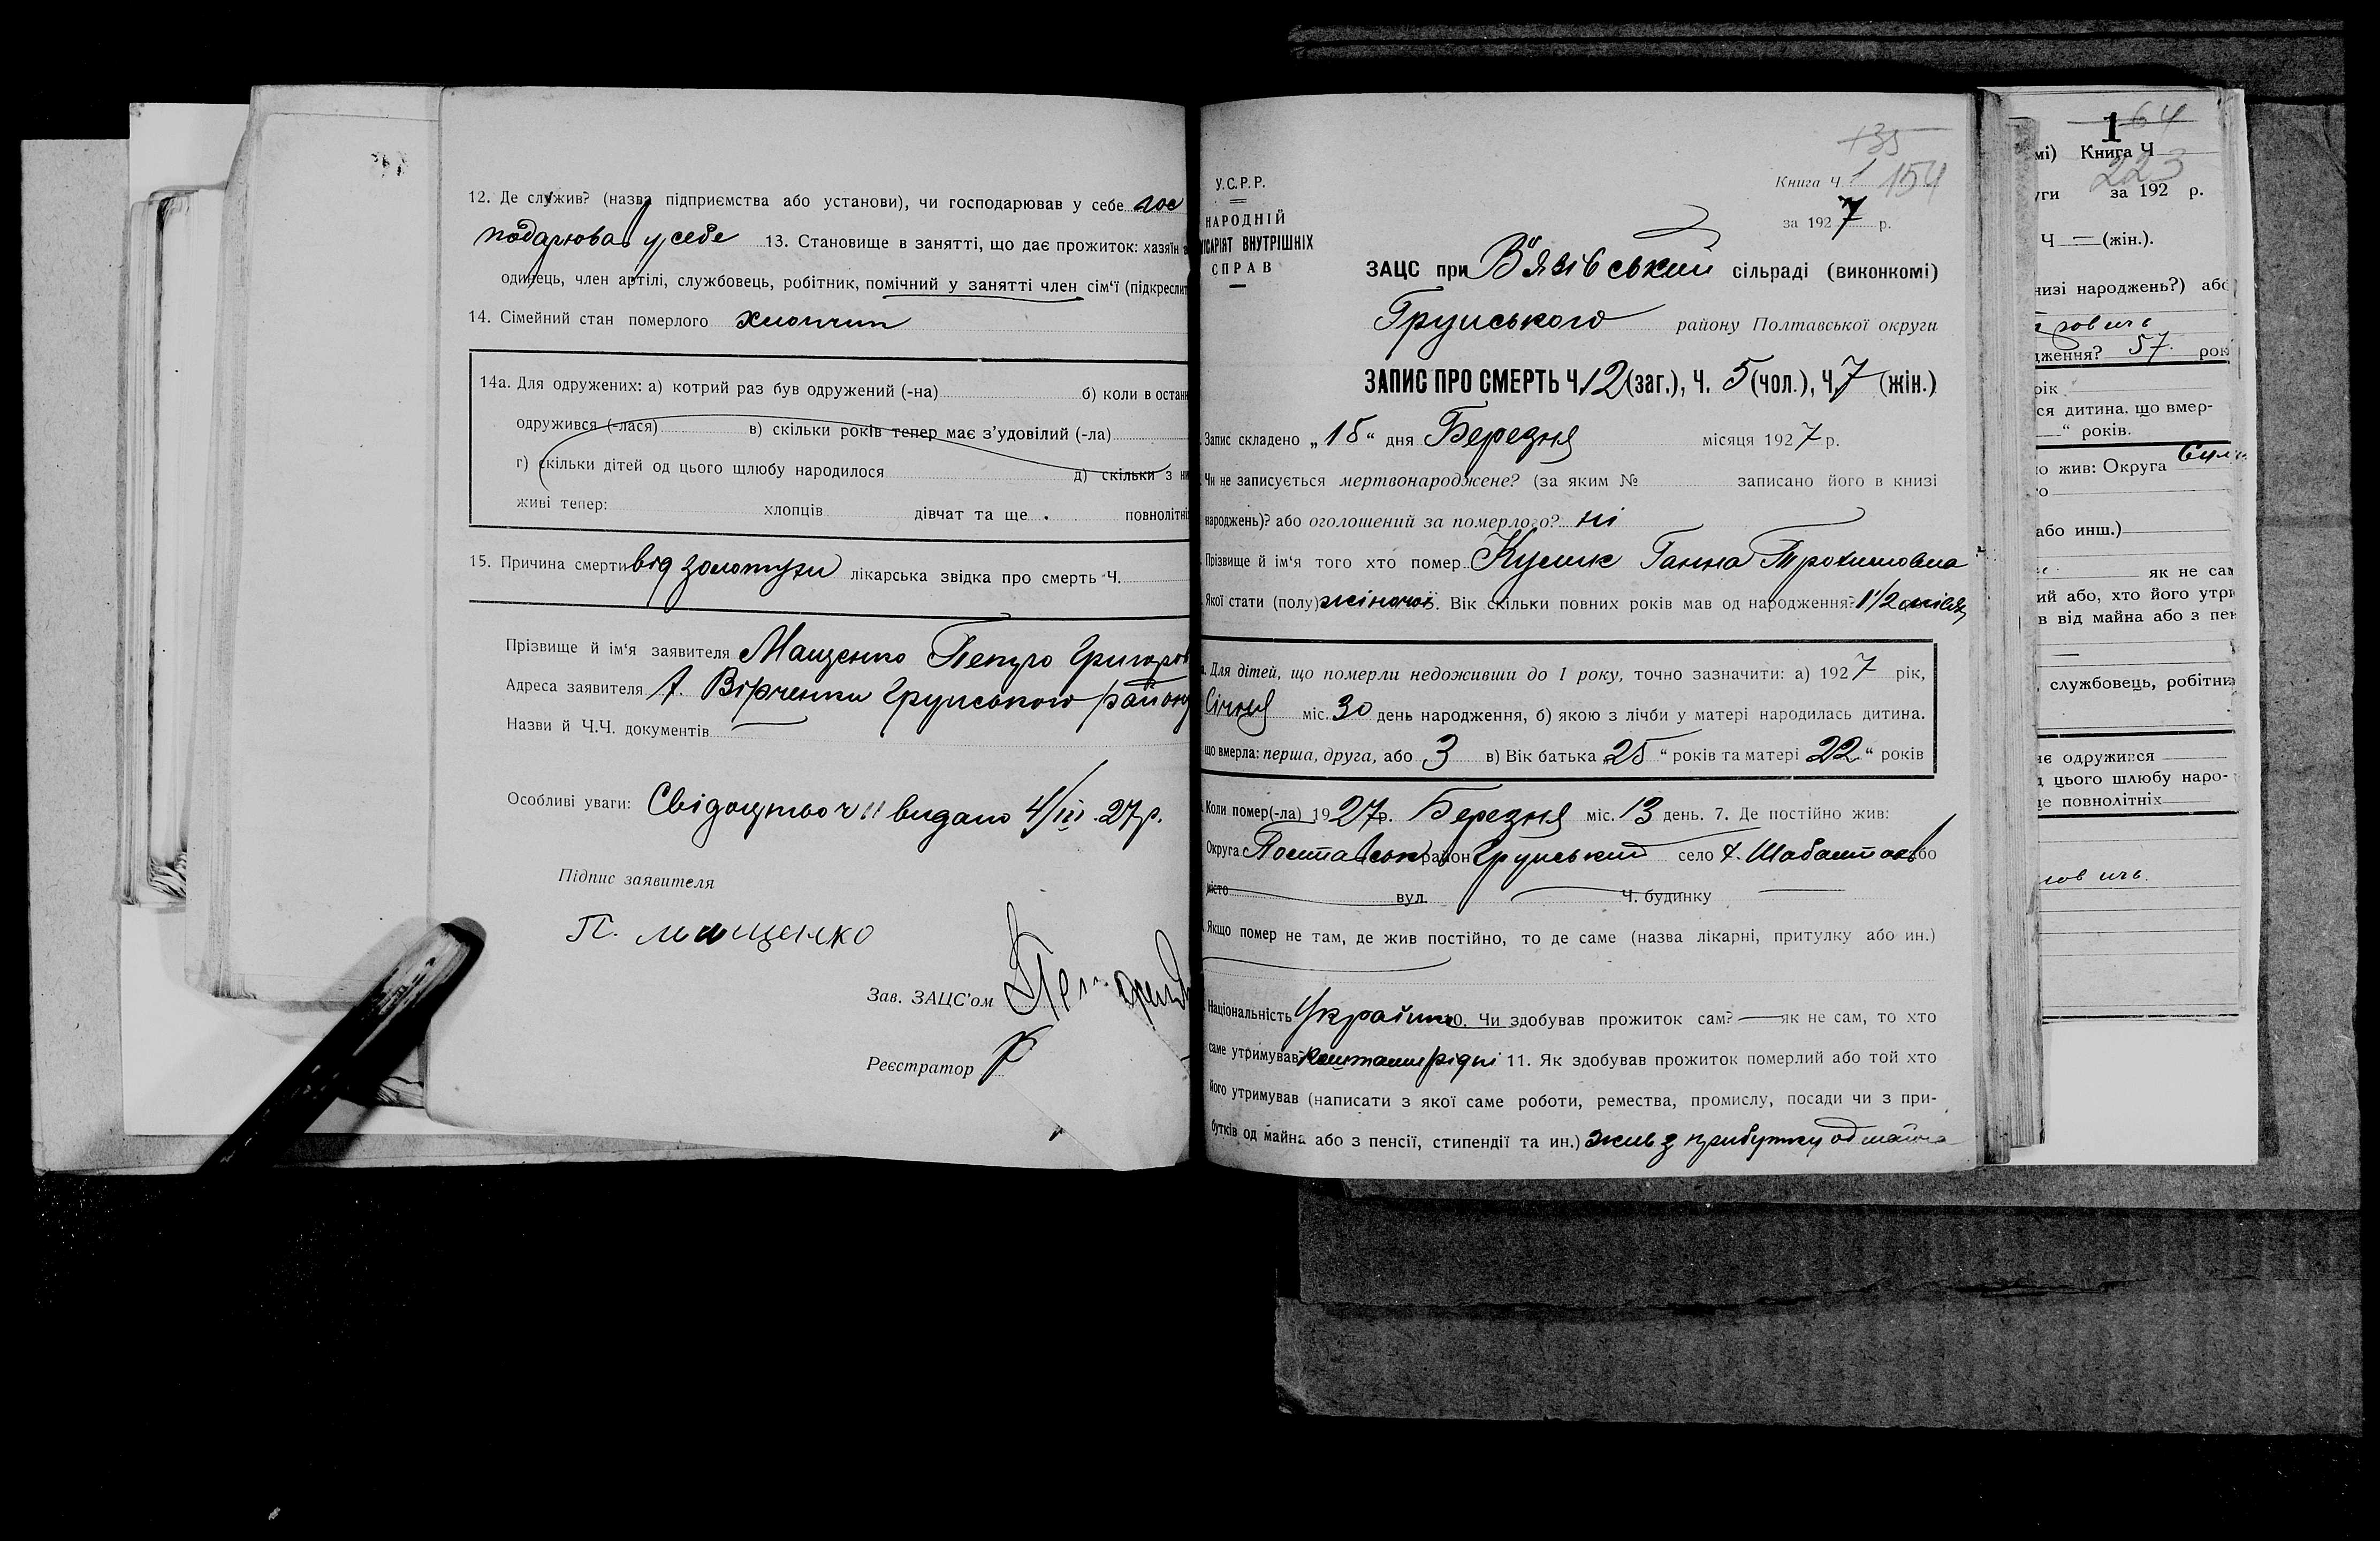 12. Де служив? (назва підприємства або установи), чи господарював у себе гос
подарював у себе 13. Становище в занятті, що дає прожиток: хазяїн
одинець, член артілі, службовець, робітник, помічний у занятті член сім'ї (підкреслит
14. Сімейний стан померлого хлопчик
14а. Для одружених: а) котрий раз був одружений (-на) б) коли в остан
одружився (-лася) в) скільки років тепер має з'удовілий (-ла)
г) скільки дітей од цього щлюбу народилося д) скільки з ни
живі тепер: хлопців дівчат та ще повнолітні
15. Причина смерти від золотухи лікарська звідка про смерть Ч.
Прізвище й ім'я заявителя Мащенко Петро Григоров
Адреса заявителя х. Вірченки Грунського району
Назви й Ч.Ч. документів
Особливі уваги: Свідоцтво ч 11 видано 4/III 27р.
Підпис заявителя
П. Мащенко
Зав. ЗАЦС'ом
Реєстратор
135
Книга Ч 1 154
за 1927 р.
У.С.Р.Р.
НАРОДНІЙ
ІСАРІЯТ ВНУТРІШНІХ
СПРАВ
ЗАЦС при В'язівський сільраді (виконкомі)
Грунського району Полтавської округи
ЗАПИС ПРО СМЕРТЬ Ч. 12 (заг.), Ч. 5 (чол.), Ч. 7 (жін.)
Запис складено „15" дня Березня місяця 1927 р.
Чи не записується мертвонароджене? (за яким № записано його в книзі
народжень)? або оголошений за померлого? ні
Прізвище й ім'я того хто помер Кулик Ганна Трохимовна
Якої стати (полу) жіночої 5. Вік скільки повних років мав од народження? 1 1/2 місяц
Для дітей, що померли недоживши до 1 року, точно зазначити: а) 1927 рік,
Січня міс. 30 день народження, б) якою з лічби у матері народилась дитина.
що вмерла: перша, друга, або 3 в) Вік батька „25" років та матері 22" років
Коли помер(-ла) 1927р. Березня міс. 13 день. 7. Де постійно жив:
Округа Полтавськ район Грунський село х. Шабалтаєв або
місто вул. Ч. будинку
Якщо помер не там, де жив постійно, то де саме (назва лікарні, притулку або ин.)
Національність Українка 10. Чи здобував прожиток сам? — як не сам, то хто
саме утримував коштами рідні 11. Як здобував прожиток померлий або той хто
його утримував (написати з якої саме роботи, ремества, промислу, посади чи з при-
бутків од майна або з пенсії, стипендії та ин.) жив з прибутку од майна
1 64
мі) Книга Ч
223
уги за 192 р.
Ч — (жін.).
низі народжень?) або
ження? 57 рок
рік
ся дитина, що вмер-
" років.
о жив: Округа
або инш.)
як не сам
ий або, хто його утри
в від майна або з пен
службовець, робітник
є одружився
цього шлюбу наро-
е повнолітніх